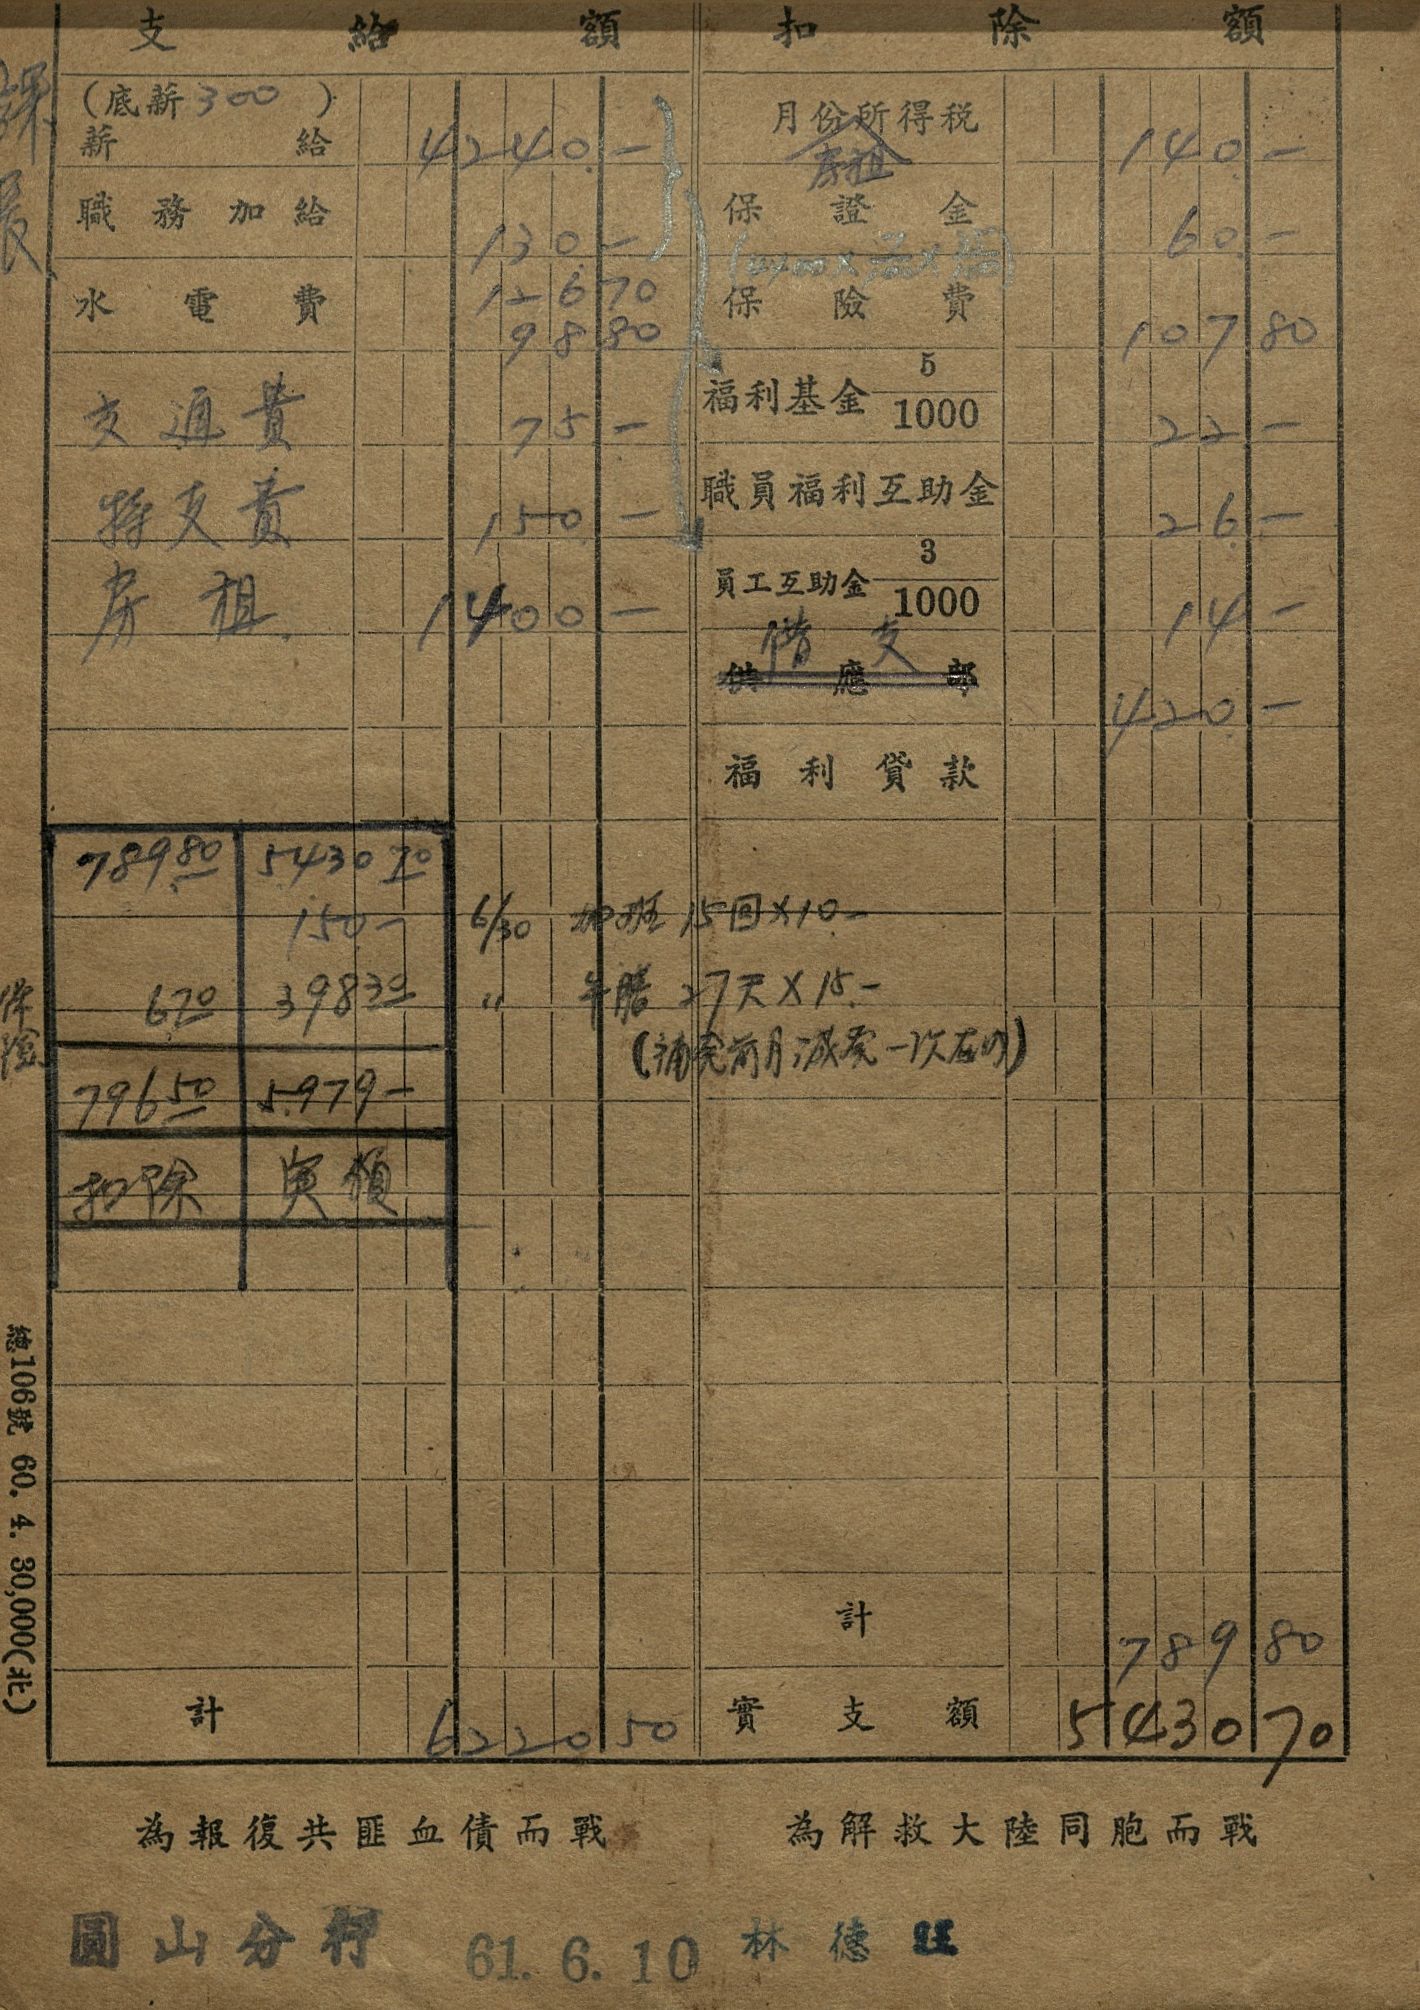 支給額 扣除額
(底薪300)
薪給 4240.-
月份所得税 140.-
房租
職務加給 130.-
保證金 60.-
水電費 126 70
98 80
保險費 107 80
交通費 75 -
福利基金 5/1000 22 -
特支費 150 -
職員福利互助金 26.-
房租. 1400 -
員工互助金 3/1000 14 -
借支
供應部 420.-
福利貸款
789.80 5430 70
150 - 6/30 加班 15回×10.-
6 70 398 30 〃 午膳 27天×15.-
(補発前月減発一次在内)
796 50 5979 -
扣除 実領
計 789 80
計 6220 50
實支額 5430 70
為報復共匪血債而戰 為解救大陸同胞而戰
圓山分行 61. 6. 10 林德旺
課長
保險
總106號 60. 4. 30,000(北)